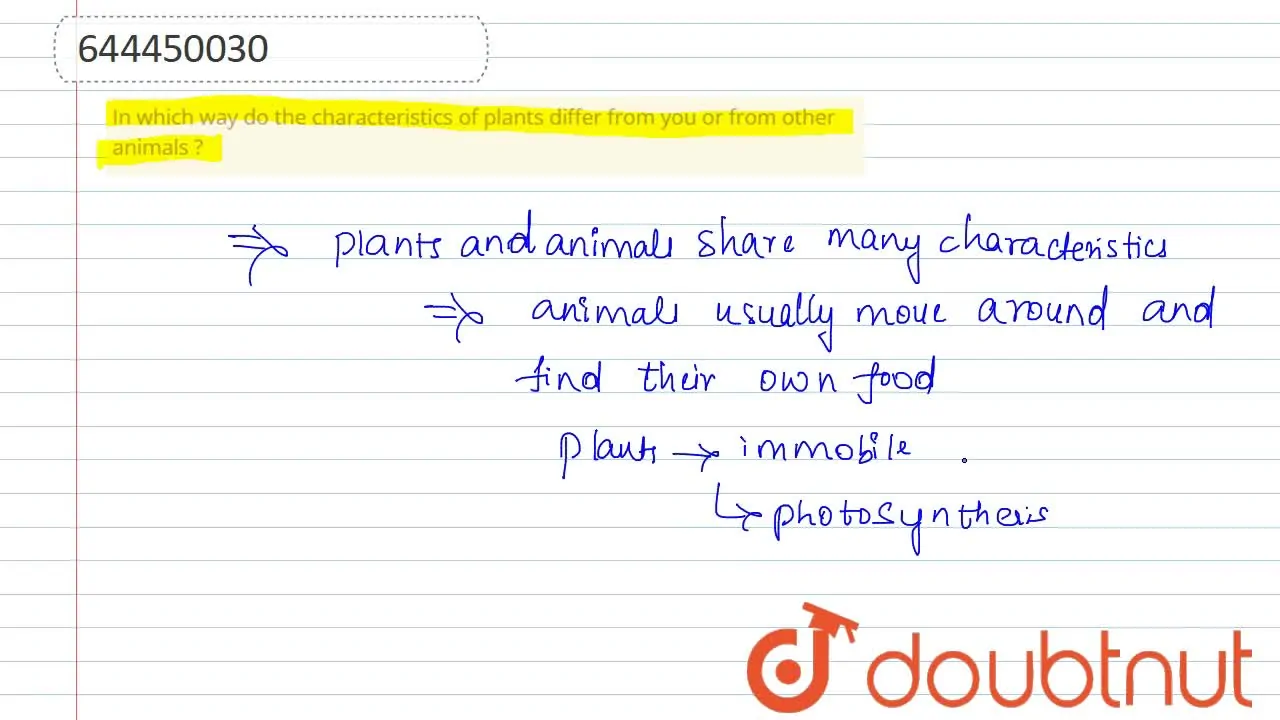 644450030
In which way do the characteristics of plants differ from you or from other
animals ?
⇒ plants and animals share many characteristics
⇒ animals usually move around and
find their own food
plants → immobile
↳ photosynthesis
doubtnut